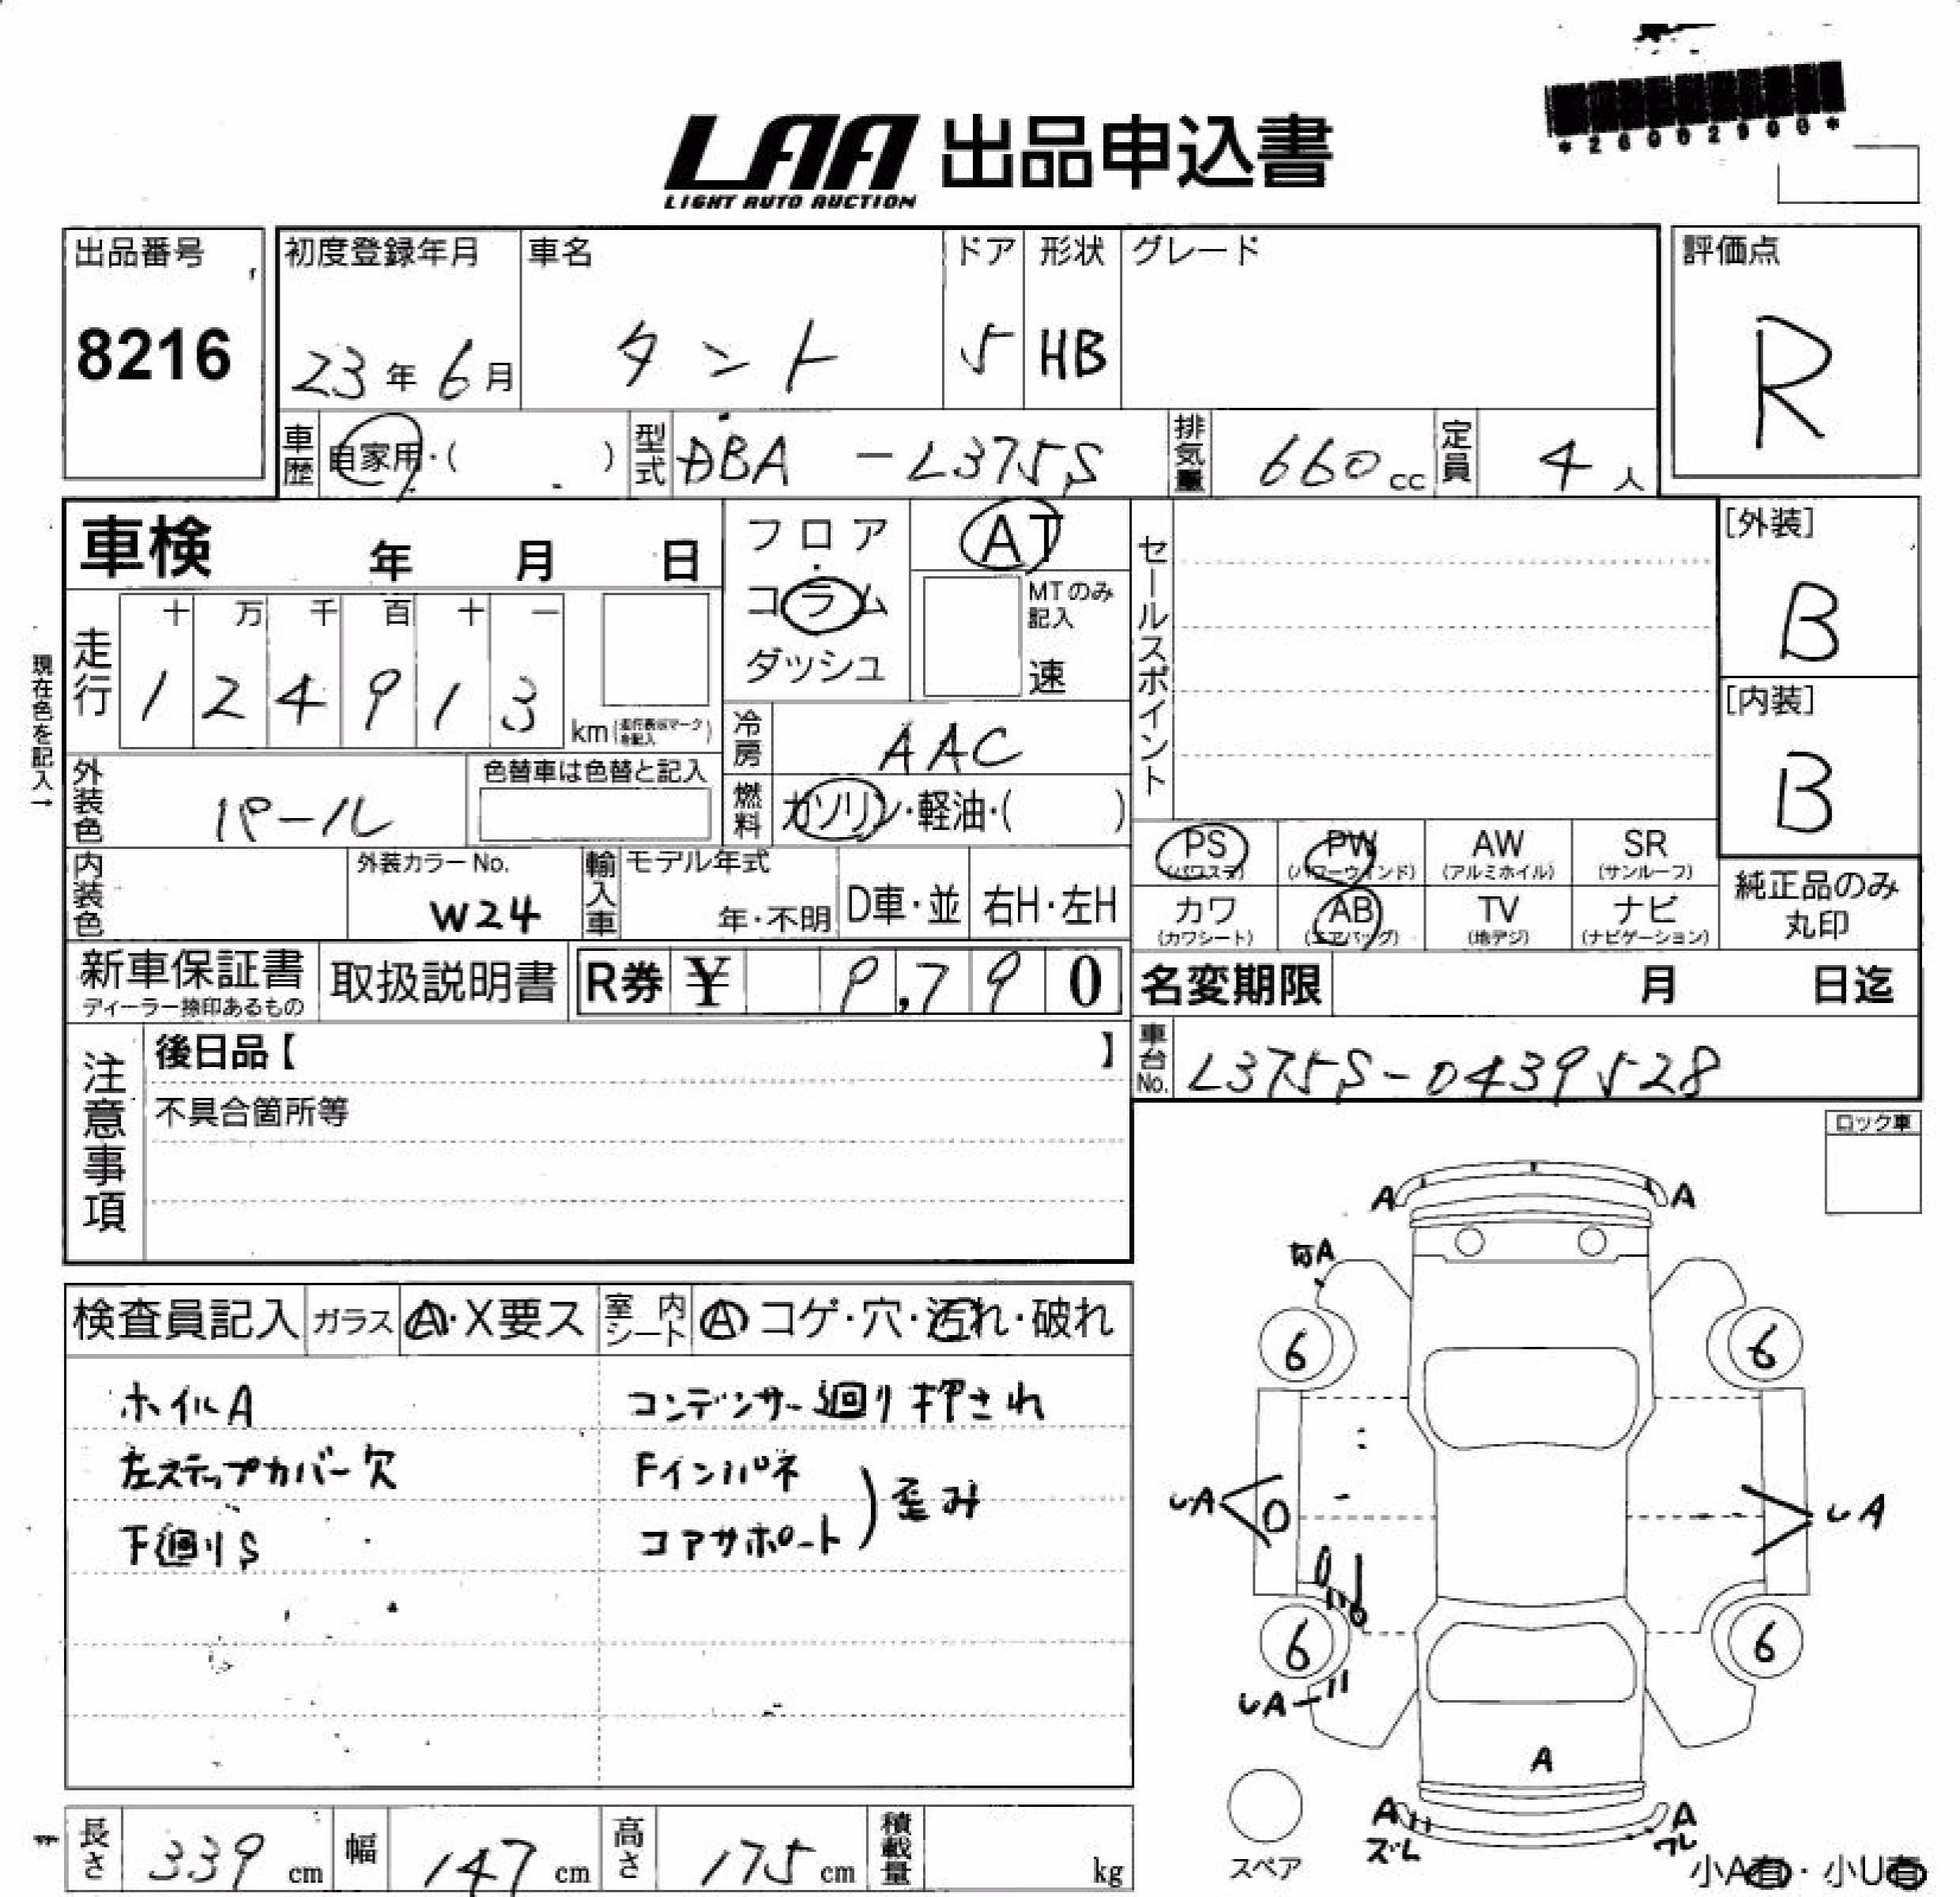 *26002900*
LAA 出品申込書
LIGHT AUTO AUCTION
出品番号
8216
初度登録年月
23年 6月
車名
タント
ドア
5
形状
HB
グレード
評価点
R
車歴 自家用・( )
型式 DBA -L375S
排気量 660cc
定員 4人
車検 年 月 日
フロア・コラム
ダッシュ
AT
MTのみ
記入
速
セールスポイント
[外装]
B
[内装]
B
現在色を記入→
走行
十 万 千 百 十 一
1 2 4 9 1 3
km
冷房 AAC
外装色 パール
色替車は色替と記入
燃料 ガソリン・軽油・( )
内装色
外装カラーNo.
W24
輸入車
モデル年式
年・不明
D車・並
右H・左H
PS
(パワステ)
PW
(パワーウインド)
AW
(アルミホイル)
SR
(サンルーフ)
カワ
(カワシート)
AB
(エアバッグ)
TV
(地デジ)
ナビ
(ナビゲーション)
純正品のみ
丸印
新車保証書
ディーラー捺印あるもの
取扱説明書
R券 ¥ 9,790
名変期限 月 日迄
車台No. L375S-0439528
注意事項
後日品【 】
不具合箇所等
ロック車
検査員記入
ガラス A・X要ス
室内シート A コゲ・穴・汚れ・破れ
ホイルA
コンデンサー廻り押され
左ステップカバー欠
Fインパネ
コアサポート
)歪み
下廻りS
A A
A
6 6
A A
6 6
A
A
A A
ズレ
スペア
小A有・小U有
長さ 339cm
幅 147cm
高さ 175cm
積載量 kg